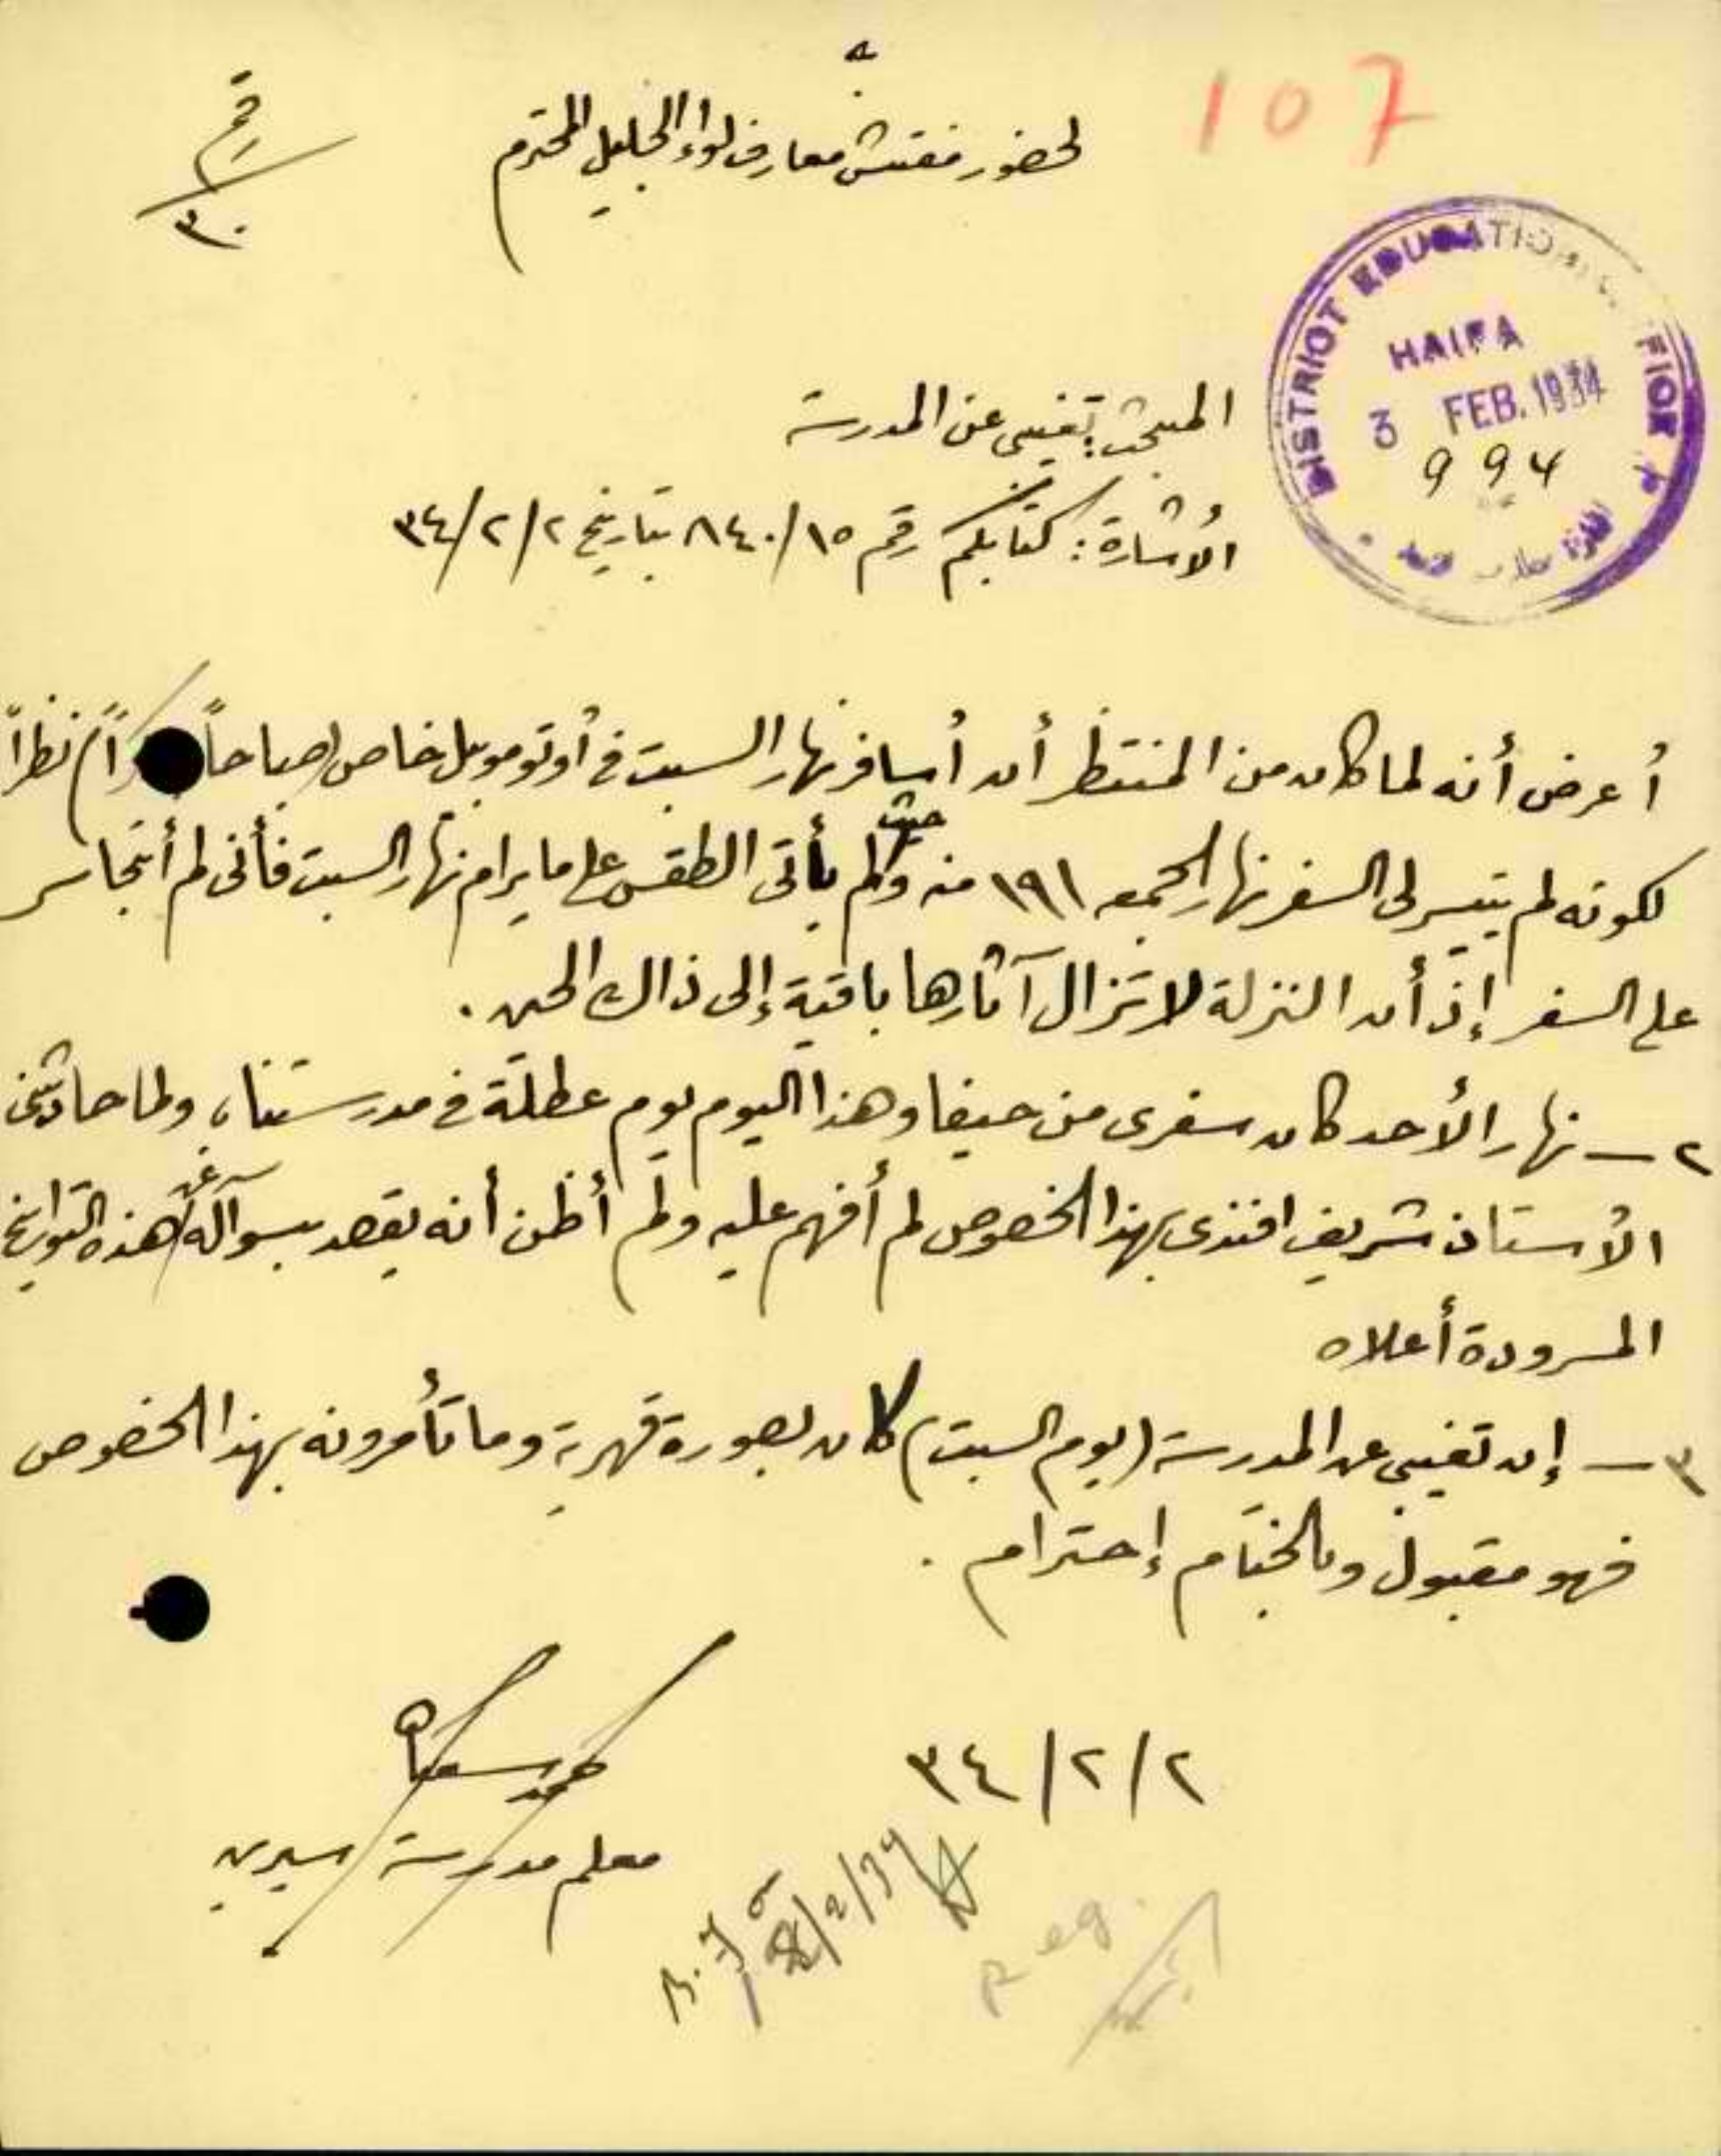 107
رقم
٣٠
لحضور مفتش معارف لواء الجليل المحترم
DISTRICT EDUCATION
HAIFA
3 FEB. 1934
994
المبحث: تغيبي عن المدرسة
الأشارة: كتابكم رقم ٨٤٠/١٥ بتاريخ ٣٤/٢/٢
أعرض أنه لما كان من المنتظر أن أسافر نهار السبت في أوتوموبيل خاص (صباحاً) نظراً
لكونه لم يتيسر لى السفر نهار الجمعه ١٩/١ منه وحيث لم يأتى الطقس على ما يرام نهار السبت فأنى لم أتجاسر
على السفر إذ أن النزلة لا تزال آثارها باقية إلى ذالك الحين .
٢ — نهار الأحد كان سفرى من حيفا وهذا اليوم يوم عطلة في مدرستنا، ولما حادثنى
الأستاذ شريف افندى بهذا الخصوص لم أفهم عليه ولم أظن أنه يقصد بسوآله عن هذه التواريخ
المسرودة أعلاه
٣ — إن تغيبي عن المدرسة (يوم السبت) كان بصورة قهرية وما تأمرونه بهذا الخصوص
فهو مقبول وبالختام إحترام .
٣٤/٢/٢
معلم مدرسة سيرين
B.F
8/2/34
Reg.